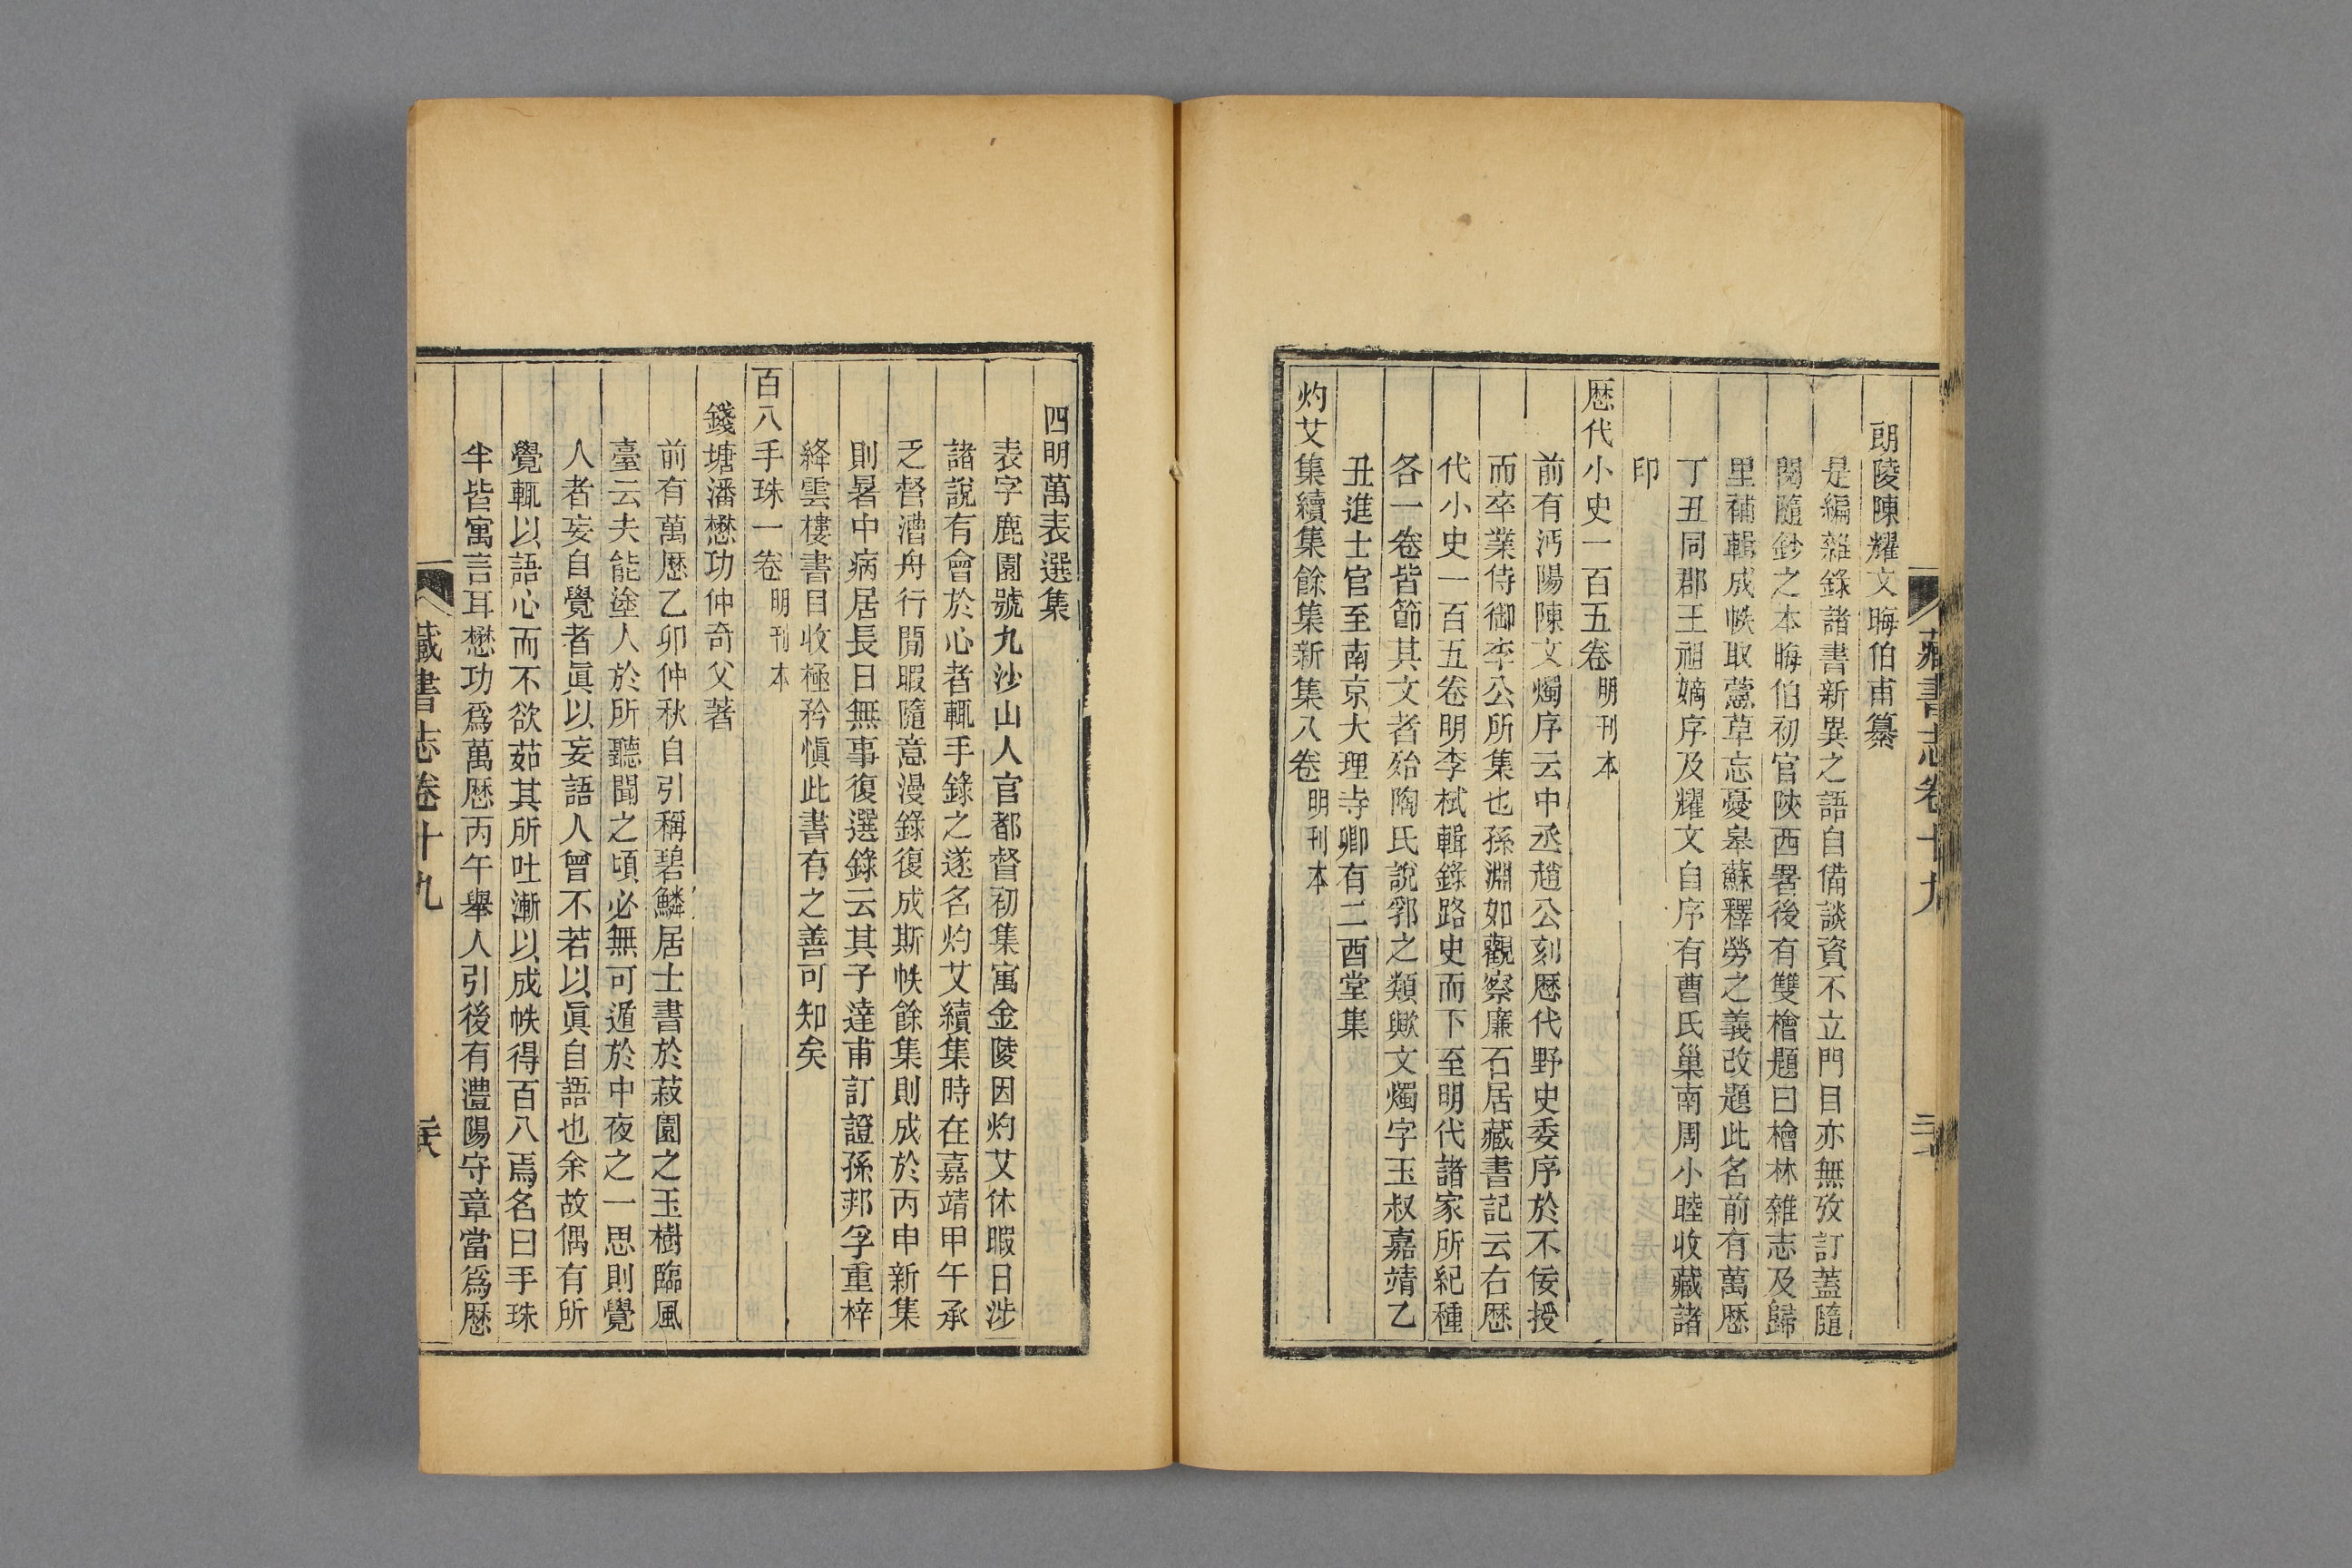 藏書志卷十九
朗陵陳耀文晦伯甫纂
是編雜錄諸書新異之語自備談資不立門目亦無攷訂蓋隨
閱隨鈔之本晦伯初官陝西署後有雙檜題曰檜林雜志及歸
里補輯成帙取萱草忘憂皋蘇釋勞之義改題此名前有萬厯
丁丑同郡王祖嫡序及耀文自序有曹氏巢南周小睦收藏諸
印
厯代小史一百五卷明刊本
前有沔陽陳文燭序云中丞趙公刻厯代野史委序於不佞授
而卒業侍御李公所集也孫淵如觀察廉石居藏書記云右厯
代小史一百五卷明李栻輯錄路史而下至明代諸家所紀種
各一卷皆節其文者殆陶氏說郛之類歟文燭字玉叔嘉靖乙
丑進士官至南京大理寺卿有二酉堂集
灼艾集續集餘集新集八卷明刊本
四明萬表選集
表字鹿園號九沙山人官都督初集寓金陵因灼艾休暇日涉
諸說有會於心者輒手錄之遂名灼艾續集時在嘉靖甲午承
乏督漕舟行閒暇隨意漫錄復成斯帙餘集則成於丙申新集
則暑中病居長日無事復選錄云其子達甫訂證孫邦孚重梓
絳雲樓書目收極矜愼此書有之善可知矣
百八手珠一卷明刊本
錢塘潘懋功仲奇父著
前有萬厯乙卯仲秋自引稱碧鱗居士書於菽園之玉樹臨風
臺云夫能塗人於所聽聞之頃必無可遁於中夜之一思則覺
人者妄自覺者眞以妄語人曾不若以眞自語也余故偶有所
覺輒以語心而不欲茹其所吐漸以成帙得百八焉名曰手珠
半皆寓言耳懋功爲萬厯丙午舉人引後有澧陽守章當爲厯
藏書志卷十九